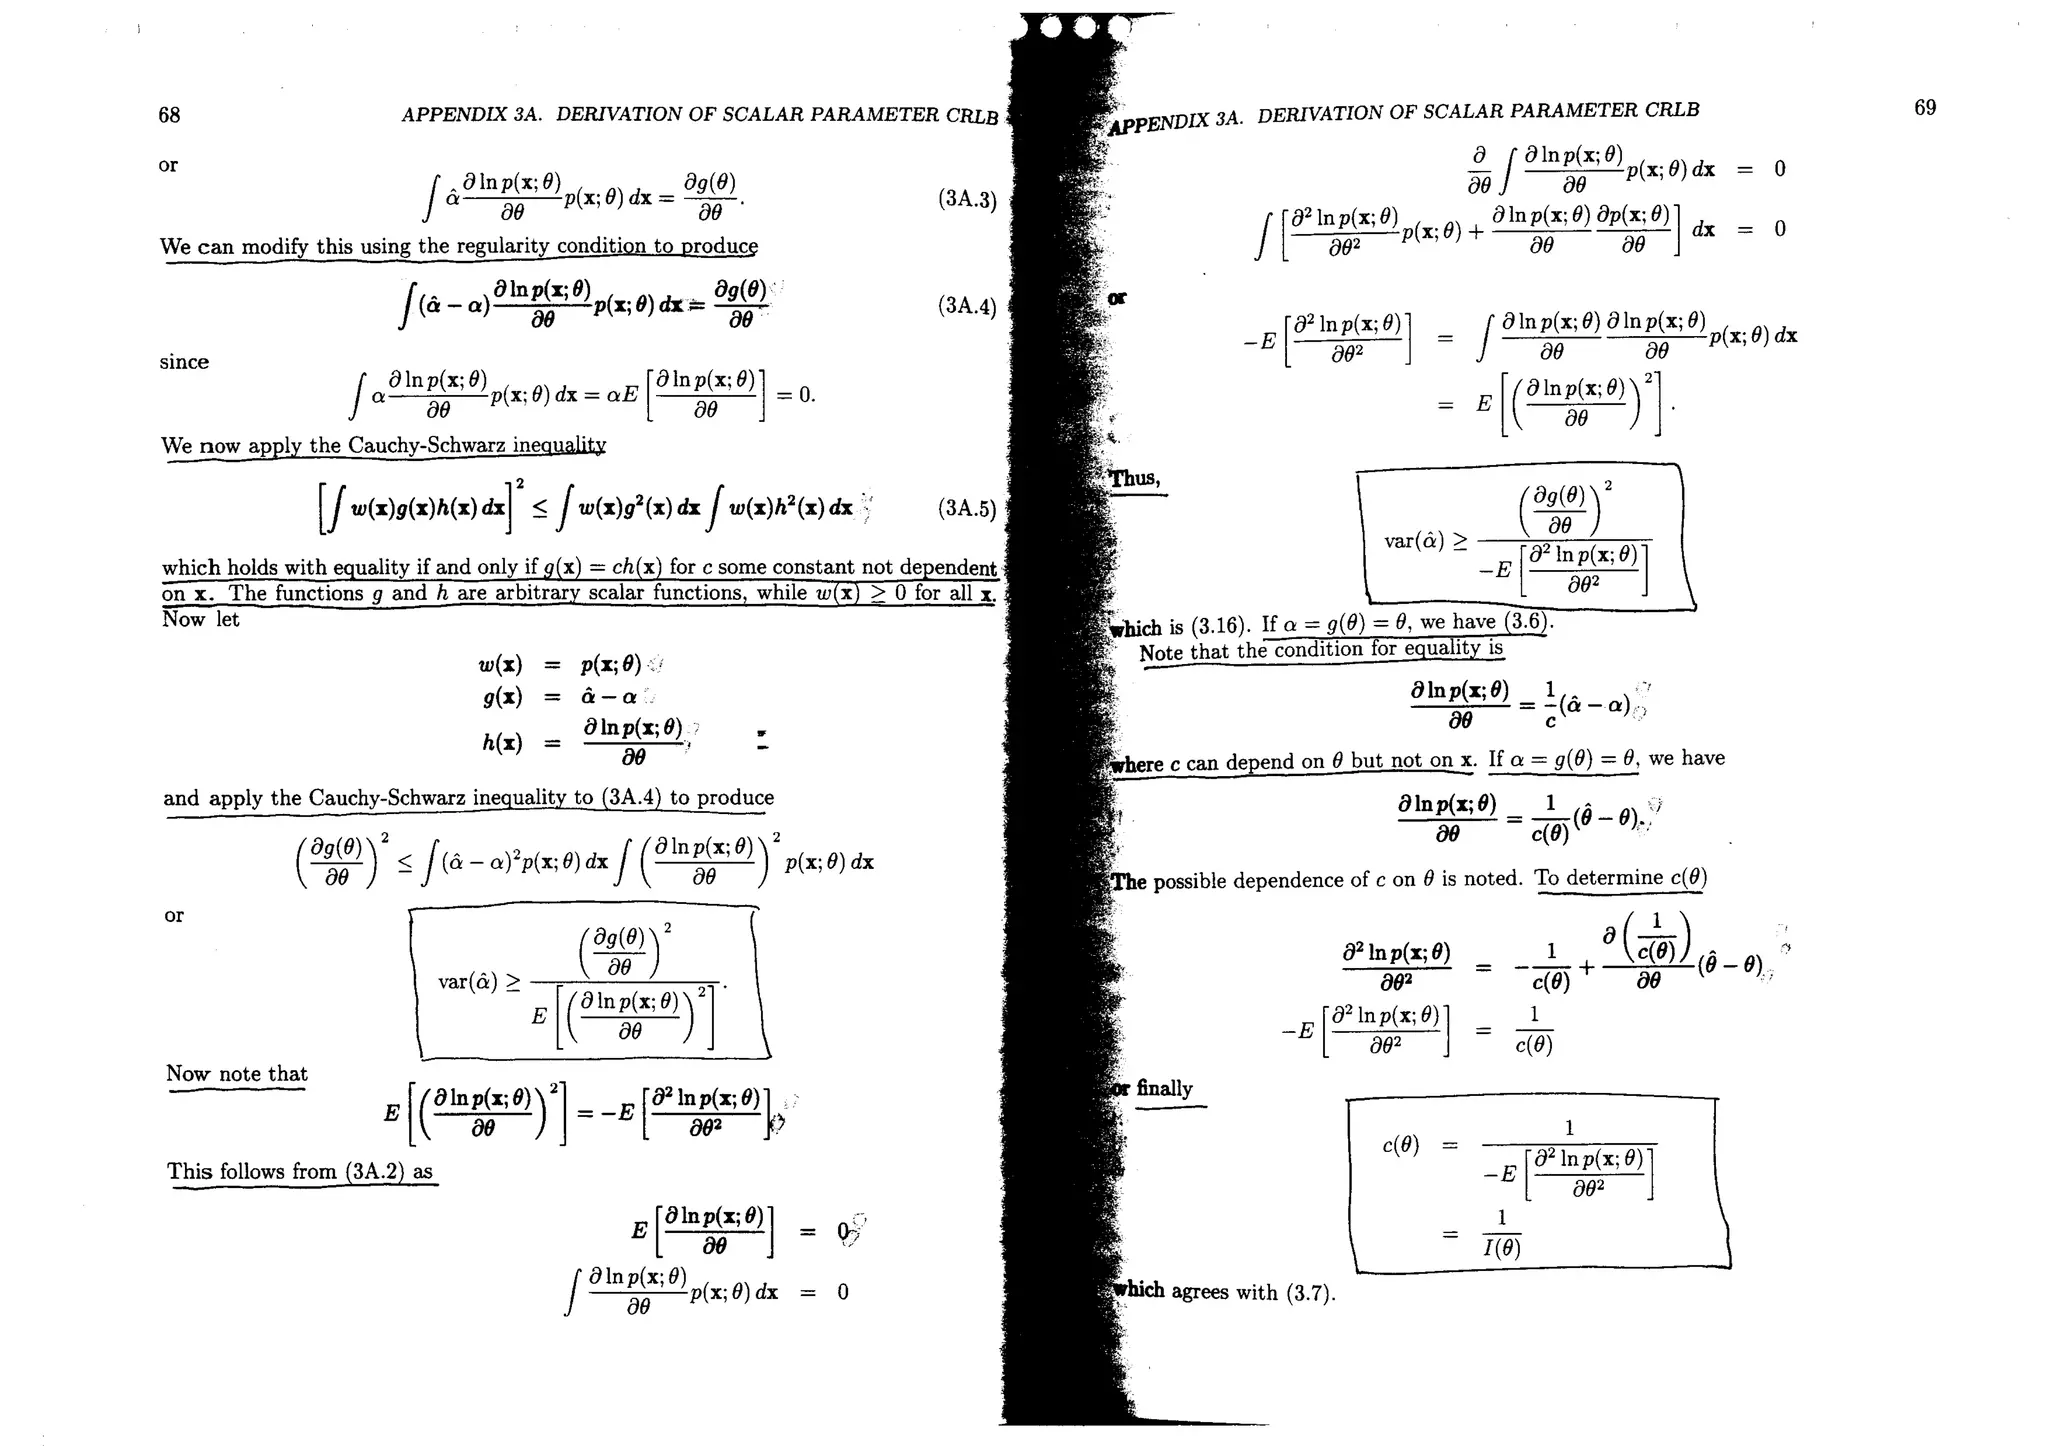 68 APPENDIX 3A. DERIVATION OF SCALAR PARAMETER CRLB
or
∫ α̂ ∂ ln p(x; θ)/∂θ p(x; θ) dx = ∂g(θ)/∂θ. (3A.3)
We can modify this using the regularity condition to produce
∫ (α̂ − α) ∂ ln p(x; θ)/∂θ p(x; θ) dx = ∂g(θ)/∂θ (3A.4)
since
∫ α ∂ ln p(x; θ)/∂θ p(x; θ) dx = αE [∂ ln p(x; θ)/∂θ] = 0.
We now apply the Cauchy-Schwarz inequality
[∫ w(x)g(x)h(x) dx]² ≤ ∫ w(x)g²(x) dx ∫ w(x)h²(x) dx (3A.5)
which holds with equality if and only if g(x) = ch(x) for c some constant not dependent
on x. The functions g and h are arbitrary scalar functions, while w(x) ≥ 0 for all x.
Now let
w(x) = p(x; θ)
g(x) = α̂ − α
h(x) = ∂ ln p(x; θ)/∂θ
and apply the Cauchy-Schwarz inequality to (3A.4) to produce
(∂g(θ)/∂θ)² ≤ ∫ (α̂ − α)² p(x; θ) dx ∫ (∂ ln p(x; θ)/∂θ)² p(x; θ) dx
or
var(α̂) ≥ (∂g(θ)/∂θ)² / E [(∂ ln p(x; θ)/∂θ)²].
Now note that
E [(∂ ln p(x; θ)/∂θ)²] = −E [∂² ln p(x; θ)/∂θ²]
This follows from (3A.2) as
E [∂ ln p(x; θ)/∂θ] = 0
∫ ∂ ln p(x; θ)/∂θ p(x; θ) dx = 0
APPENDIX 3A. DERIVATION OF SCALAR PARAMETER CRLB 69
∂/∂θ ∫ ∂ ln p(x; θ)/∂θ p(x; θ) dx = 0
∫ [∂² ln p(x; θ)/∂θ² p(x; θ) + ∂ ln p(x; θ)/∂θ ∂p(x; θ)/∂θ] dx = 0
or
−E [∂² ln p(x; θ)/∂θ²] = ∫ ∂ ln p(x; θ)/∂θ ∂ ln p(x; θ)/∂θ p(x; θ) dx
= E [(∂ ln p(x; θ)/∂θ)²].
Thus,
var(α̂) ≥ (∂g(θ)/∂θ)² / −E [∂² ln p(x; θ)/∂θ²]
which is (3.16). If α = g(θ) = θ, we have (3.6).
Note that the condition for equality is
∂ ln p(x; θ)/∂θ = 1/c (α̂ − α)
where c can depend on θ but not on x. If α = g(θ) = θ, we have
∂ ln p(x; θ)/∂θ = 1/c(θ) (θ̂ − θ).
The possible dependence of c on θ is noted. To determine c(θ)
∂² ln p(x; θ)/∂θ² = −1/c(θ) + ∂(1/c(θ))/∂θ (θ̂ − θ)
−E [∂² ln p(x; θ)/∂θ²] = 1/c(θ)
or finally
c(θ) = 1 / −E [∂² ln p(x; θ)/∂θ²]
= 1/I(θ)
which agrees with (3.7).